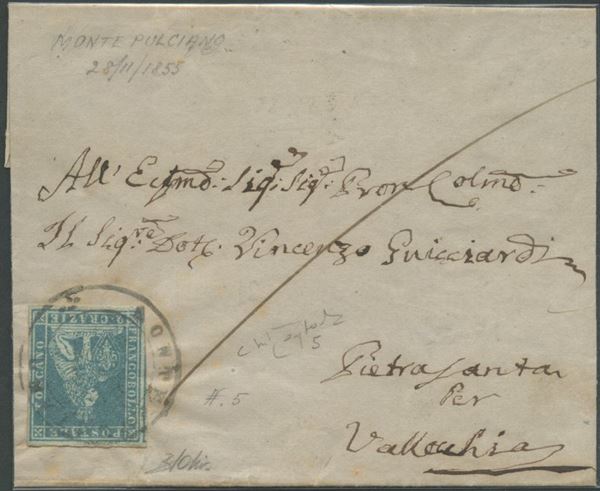 MONTE PULCIANO
28/11/1855
All' Ecc̃mo: Sig:re Sig:re Pron Colmo:
Il Sig:re Dott. Vincenzo Guicciardi
Pietrasanta
Per
Vallecchia
FRANCOBOLLO
POSTALE
TOSCANO
2 CRAZIE
MONTE
5
#.5